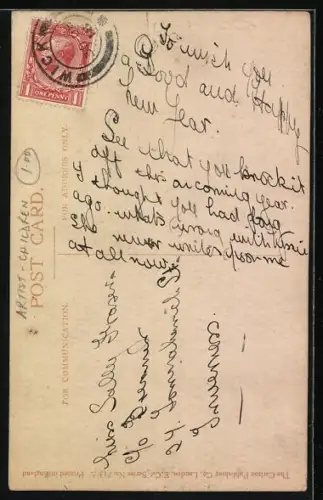 To wish you
a Good and Happy
New Year.
See that you brack it
off this a coming year.
I thought you had long
ago. whats wrong with
She never writes from me
at all now.
Miss Sally
c/o
24,
Inverness
POST CARD.
FOR COMMUNICATION.
FOR ADDRESS ONLY.
ARTIST - CHILDREN
1.00
WICK
ONE PENNY
The Carlton Publishing Co., London, E.C. Series No.
Printed in England